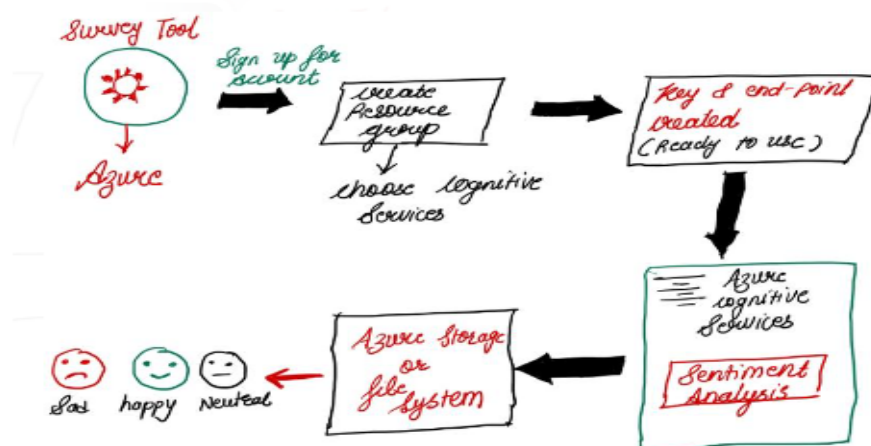 Survey Tool
Sign up for
account
Azure
create
Resource
group
choose cognitive
Services
Key & end-point
created
(Ready to use)
Azure
cognitive
Services
Sentiment
Analysis
Azure Storage
or
file
System
Sad happy Neutral